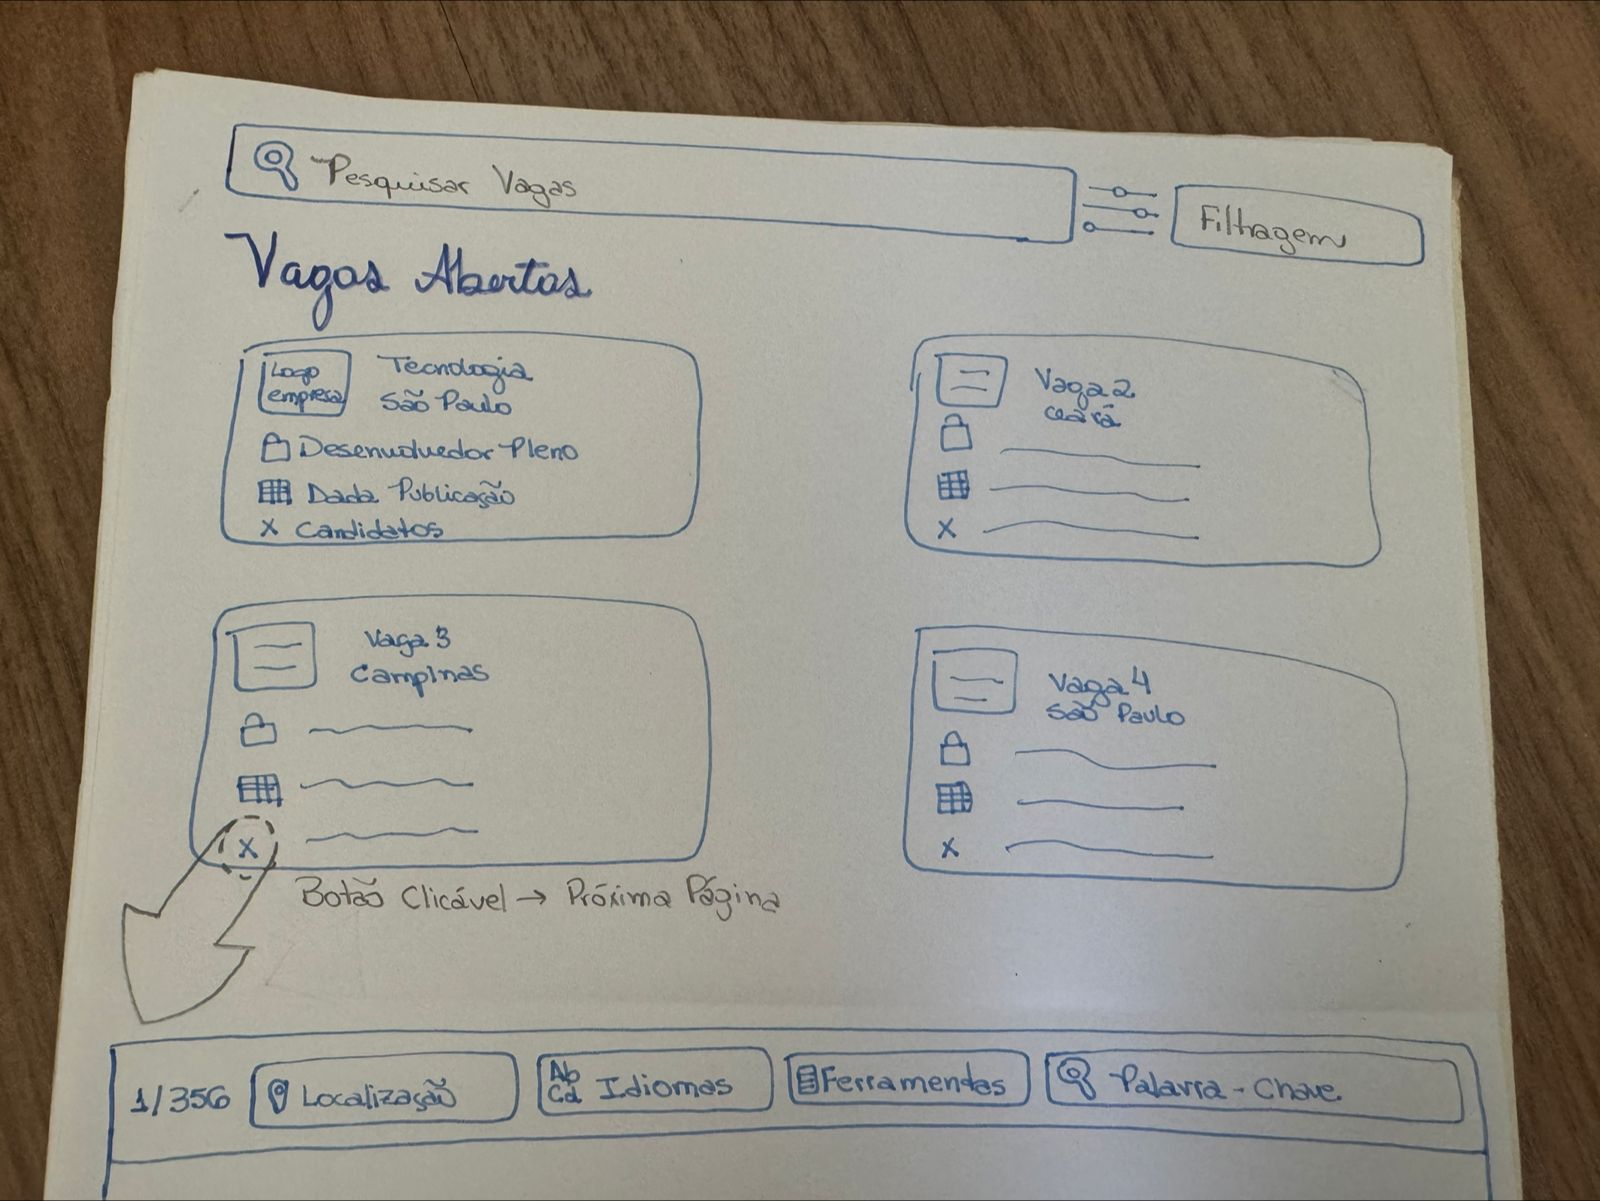 Pesquisar Vagas
Filtragem
Vagas Abertas
Logo empresa
Tecnologia
São Paulo
Desenvolvedor Pleno
Dada Publicação
X Candidatos
Vaga 2
Ceará
X
Vaga 3
Campinas
X
Vaga 4
São Paulo
X
Botão Clicável → Próxima Página
1/356
Localização
Ab
Cd
Idiomas
Ferramentas
Palavra-Chave